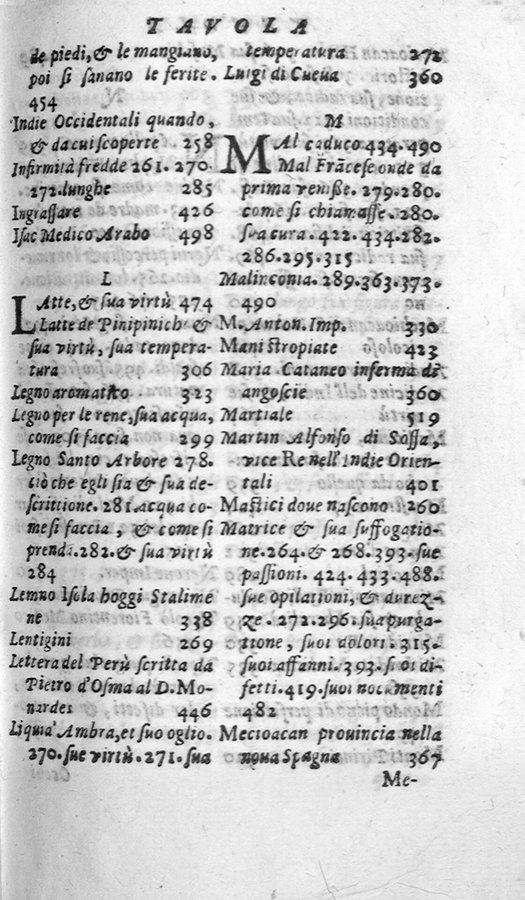 TAVOLA
de piedi, & le mangiano,
poi si sanano le ferite.
454
Indie Occidentali quando,
& da cui scoperte 258
Infirmità fredde 261. 270.
272. lunghe 285
Ingrassare 426
Isac Medico Arabo 498
L
LAtte, & sua virtù 474
Latte de Pinipinichi &
sua virtù, sua tempera-
tura 306
Legno aromatico 323
Legno per le rene, sua acqua,
come si faccia 299
Legno Santo Arbore 278.
ciò che egli sia & sua de-
scrittione. 281. acqua co-
me si faccia, & come si
prenda. 282. & sua virtù
284
Lemno Isola hoggi Stalime
ne 338
Lentigini 269
Lettera del Perù scritta da
Pietro d'Osma al D. Mo-
nardes 446
Liquiá Ambra, et suo oglio.
270. sue virtù. 271. sua
temperatura 272
Luigi di Cueua 360
M
MAl caduco 434. 490
Mal Frãcese onde da
prima venisse. 279. 280.
come si chiamasse. 280.
sua cura. 422. 434. 282.
286. 295. 315
Malinconia. 289. 363. 373.
490
M. Anton. Imp. 330
Mani stropiate 423
Maria Cataneo inferma di
angoscie 360
Martiale 519
Martin Alfonso di Sossa,
vice Re nell'Indie Orien-
tali 401
Mastici doue nascono 260
Matrice & sua suffogatio-
ne. 264. & 268. 393. sue
passioni. 424. 433. 488.
sue opilationi, & durez-
ze. 272. 296. sua purga-
tione, suoi dolori. 315.
suoi affanni. 393. suoi di-
fetti. 419. suoi nocumenti
482
Mecioacan prouincia nella
noua Spagna 367
Me-